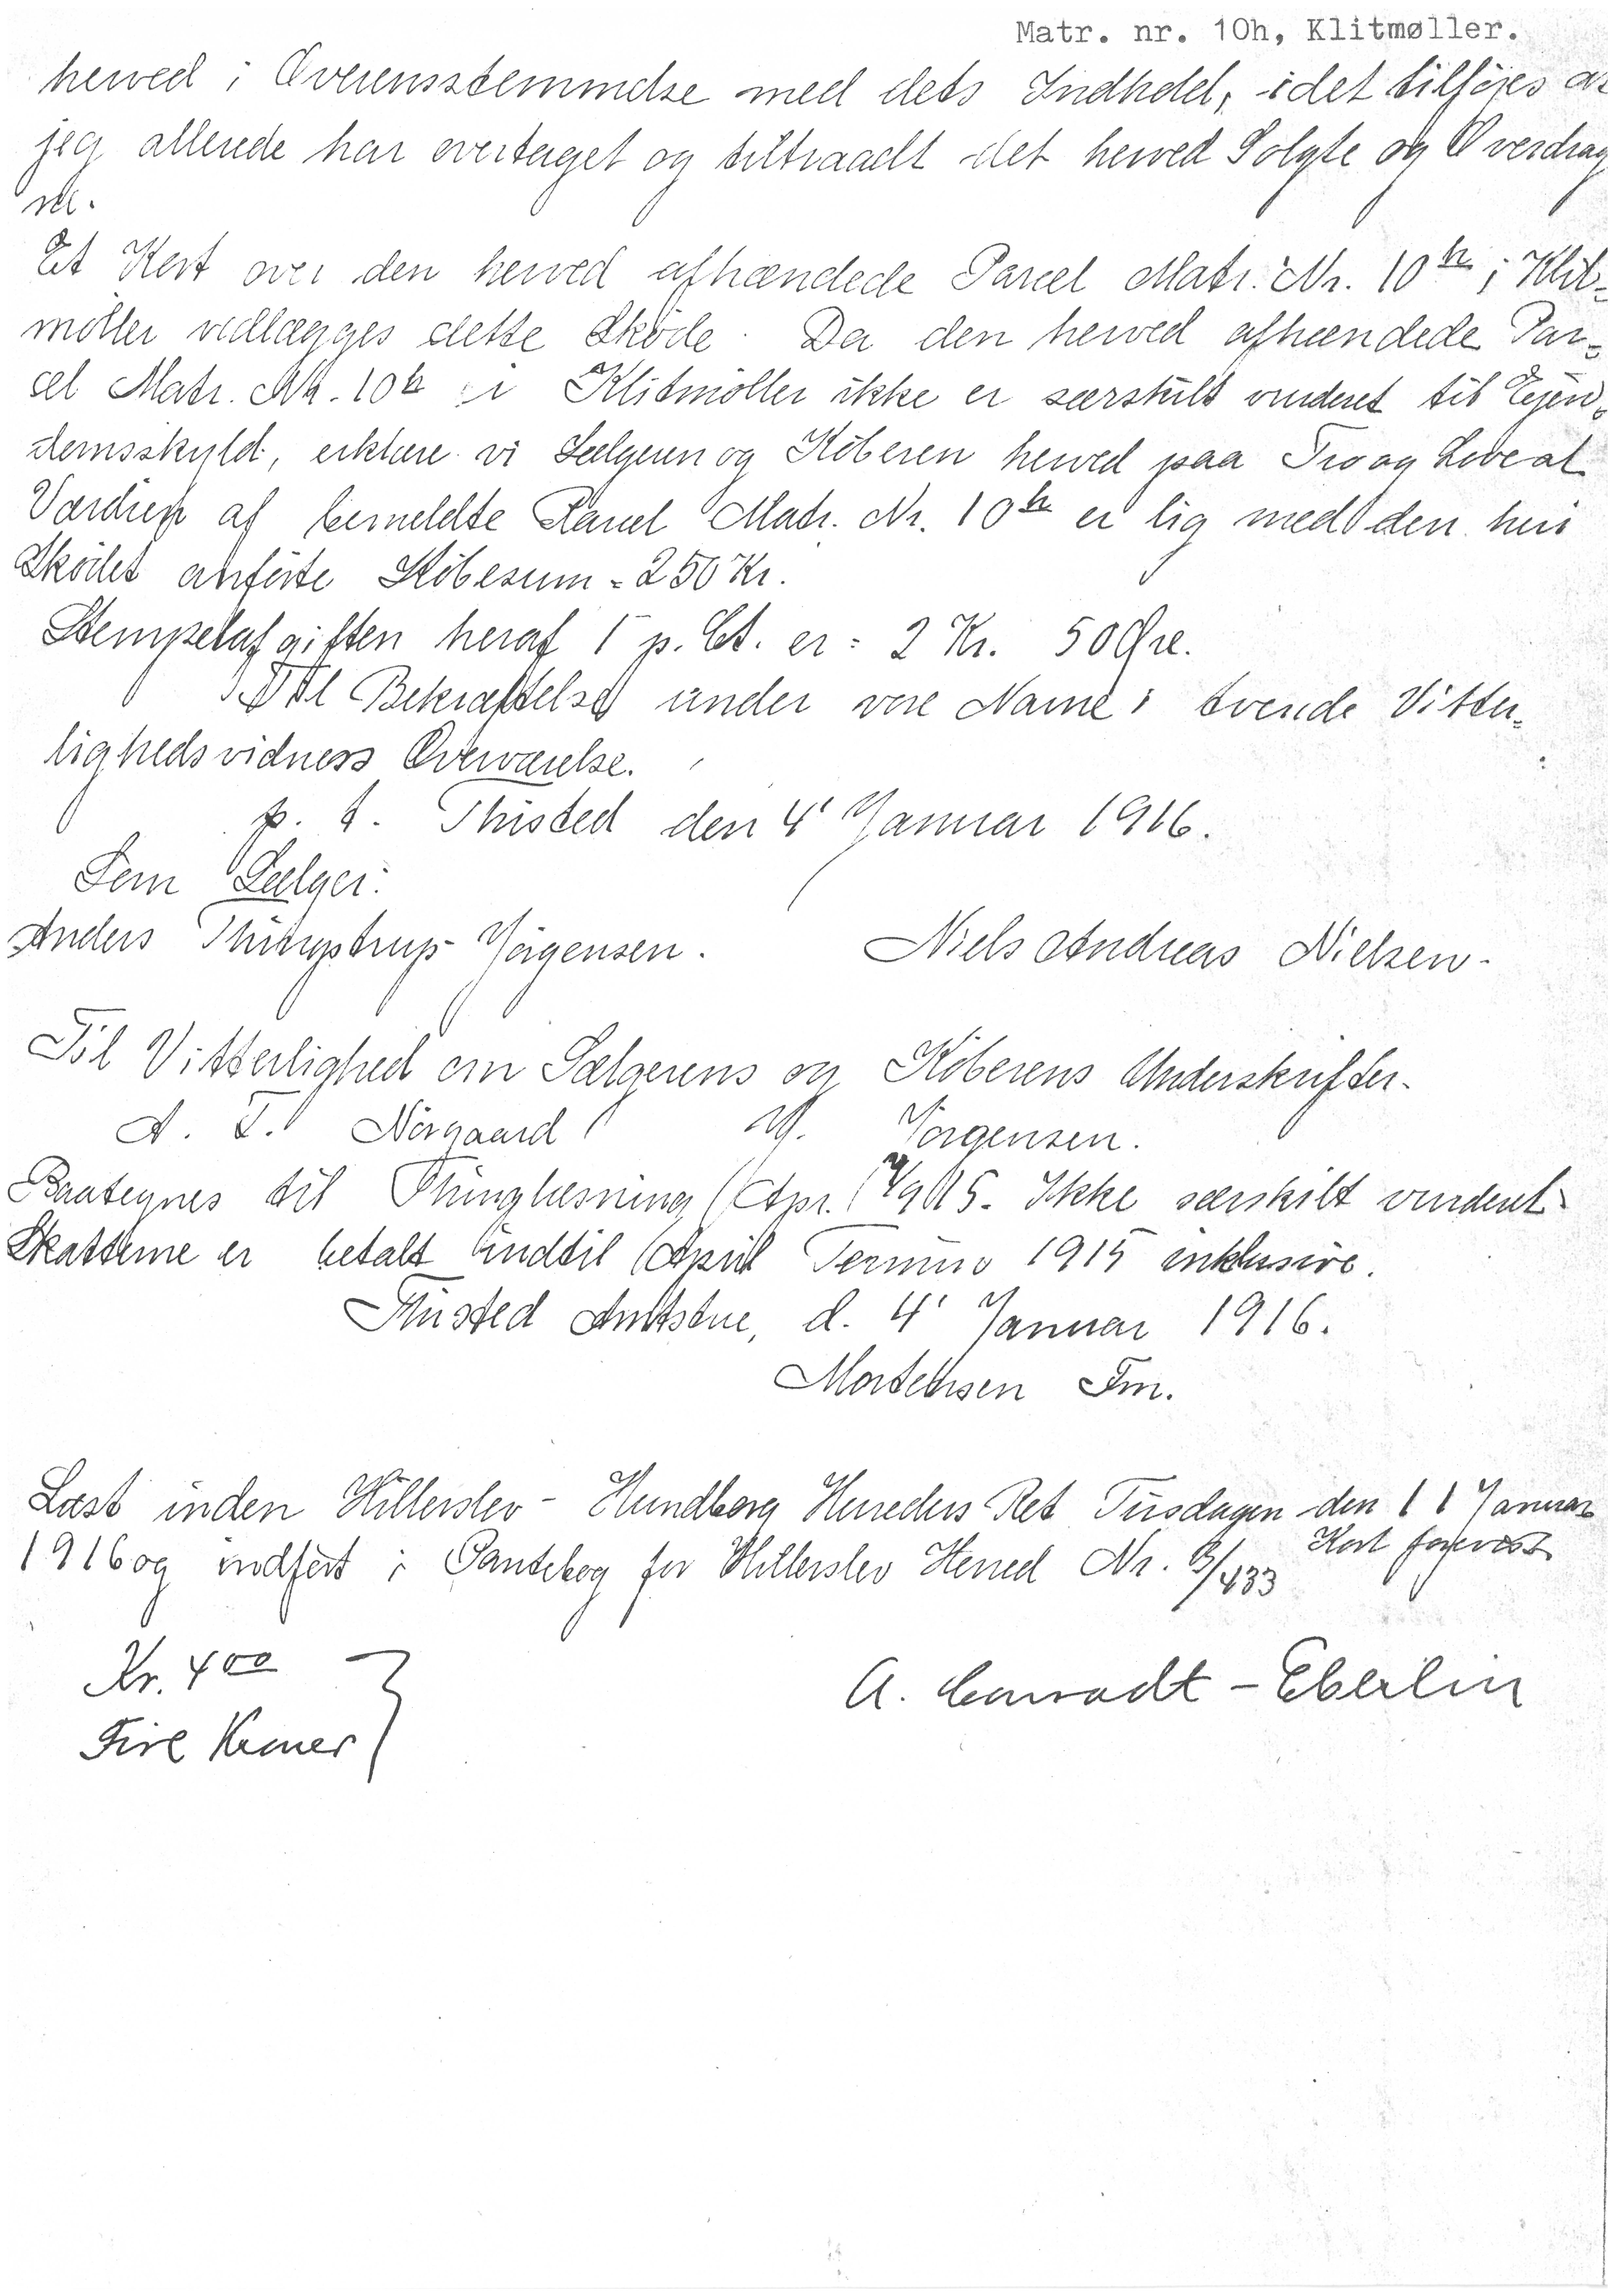 Matr. nr. 10h, Klitmøller.
herved i Overensstemmelse med dets Indhold, idet tilføjes at
jeg allerede har overtaget og tiltraadt det herved Solgte og Overdrag
ne.
Et Kort over den herved afhændede Parcel Matr. Nr. 10h i Klit-
møller vedlægges dette Skøde. Da den herved afhændede Par-
cel Matr. Nr. 10h i Klitmøller ikke er særskilt vurderet til Ejen-
domsskyld, erklære vi Sælgeren og Køberen herved paa Tro og Love at
Værdien af bemeldte Parcel Matr. Nr. 10h er lig med den heri
Skødet anførte Købesum = 250 Kr.
Stempelafgiften heraf 1 p. Ct. er = 2 Kr. 50 Øre.
Til Bekræftelse under vore Navne i tvende Vitter-
lighedsvidners Overværelse.
p. t. Thisted den 4' Januar 1916.
Som Sælger:
Anders Thingstrup Jørgensen. Niels Andreas Nielsen.
Til Vitterlighed om Sælgerens og Køberens Underskrifter.
A. T. Nørgaard J. Jørgensen.
Paategnes til Thinglæsning (Apr. 1915. Ikke særskilt vurderet.
Skatterne er betalt indtil April Termin 1915 inklusive.
Thisted Amtstue, d. 4' Januar 1916.
Mortensen Fm.
Læst inden Hillerslev - Hundborg Herreders Ret Tirsdagen den 11 Januar
1916 og indført i Pantebog for Hillerslev Herred Nr. 6/433 Kort forevist
Kr. 400
Fire Kroner
A. Conradt - Eberlin